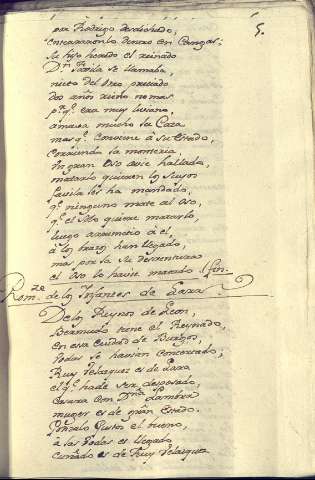 5.
era Rodrigo desdichado,
enterraronlo dentro en Cangas;
Su hijo heredo el reinado
Dn. Favila se llamaba,
nieto del otro preciado
dos años reino no mas
pr. qe. era muy liviano,
amava mucho la Caza
mas qe. conviene á su Estado,
Corriendo la monteria
Un gran Oso avie hallado,
matarlo quieren los suyos
Favila les ha mandado,
qe. ninguno mate al Oso,
qe. el solo quiere matarlo,
luego arremetio á él,
á los brazos han llegado,
mas por la su desventura
el Oso lo havie matado. fin.
Romze. de los Infantes de Lara.
De los Reynos de Leon,
Bermudo tiene el Reynado,
en esta ciudad de Burgos,
bodas se havian concertado;
Ruy Velazquez es de Lara
el qe. hade ser desposado,
casara con Dña. Lambra
muger es de gran Estado.
Gonzalo Gustos el bueno,
á las bodas es llegado
cuñado es de Ruy Velazquez